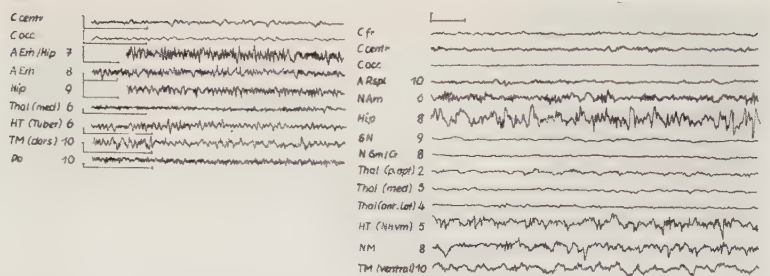 C centr
C occ
A Em/Hip 7
A Em 8
Hip 9
Thal (med) 6
HT (Tuber) 6
TM (dors) 10
Do 10
C fr
C centr
C occ
A Rspl 10
N Am 6
Hip 8
SN 9
N Gm/Cr 8
Thal (p. opt) 2
Thal (med) 5
Thal (ant. Lat) 4
HT (Nhvm) 5
NM 8
TM (ventral) 10